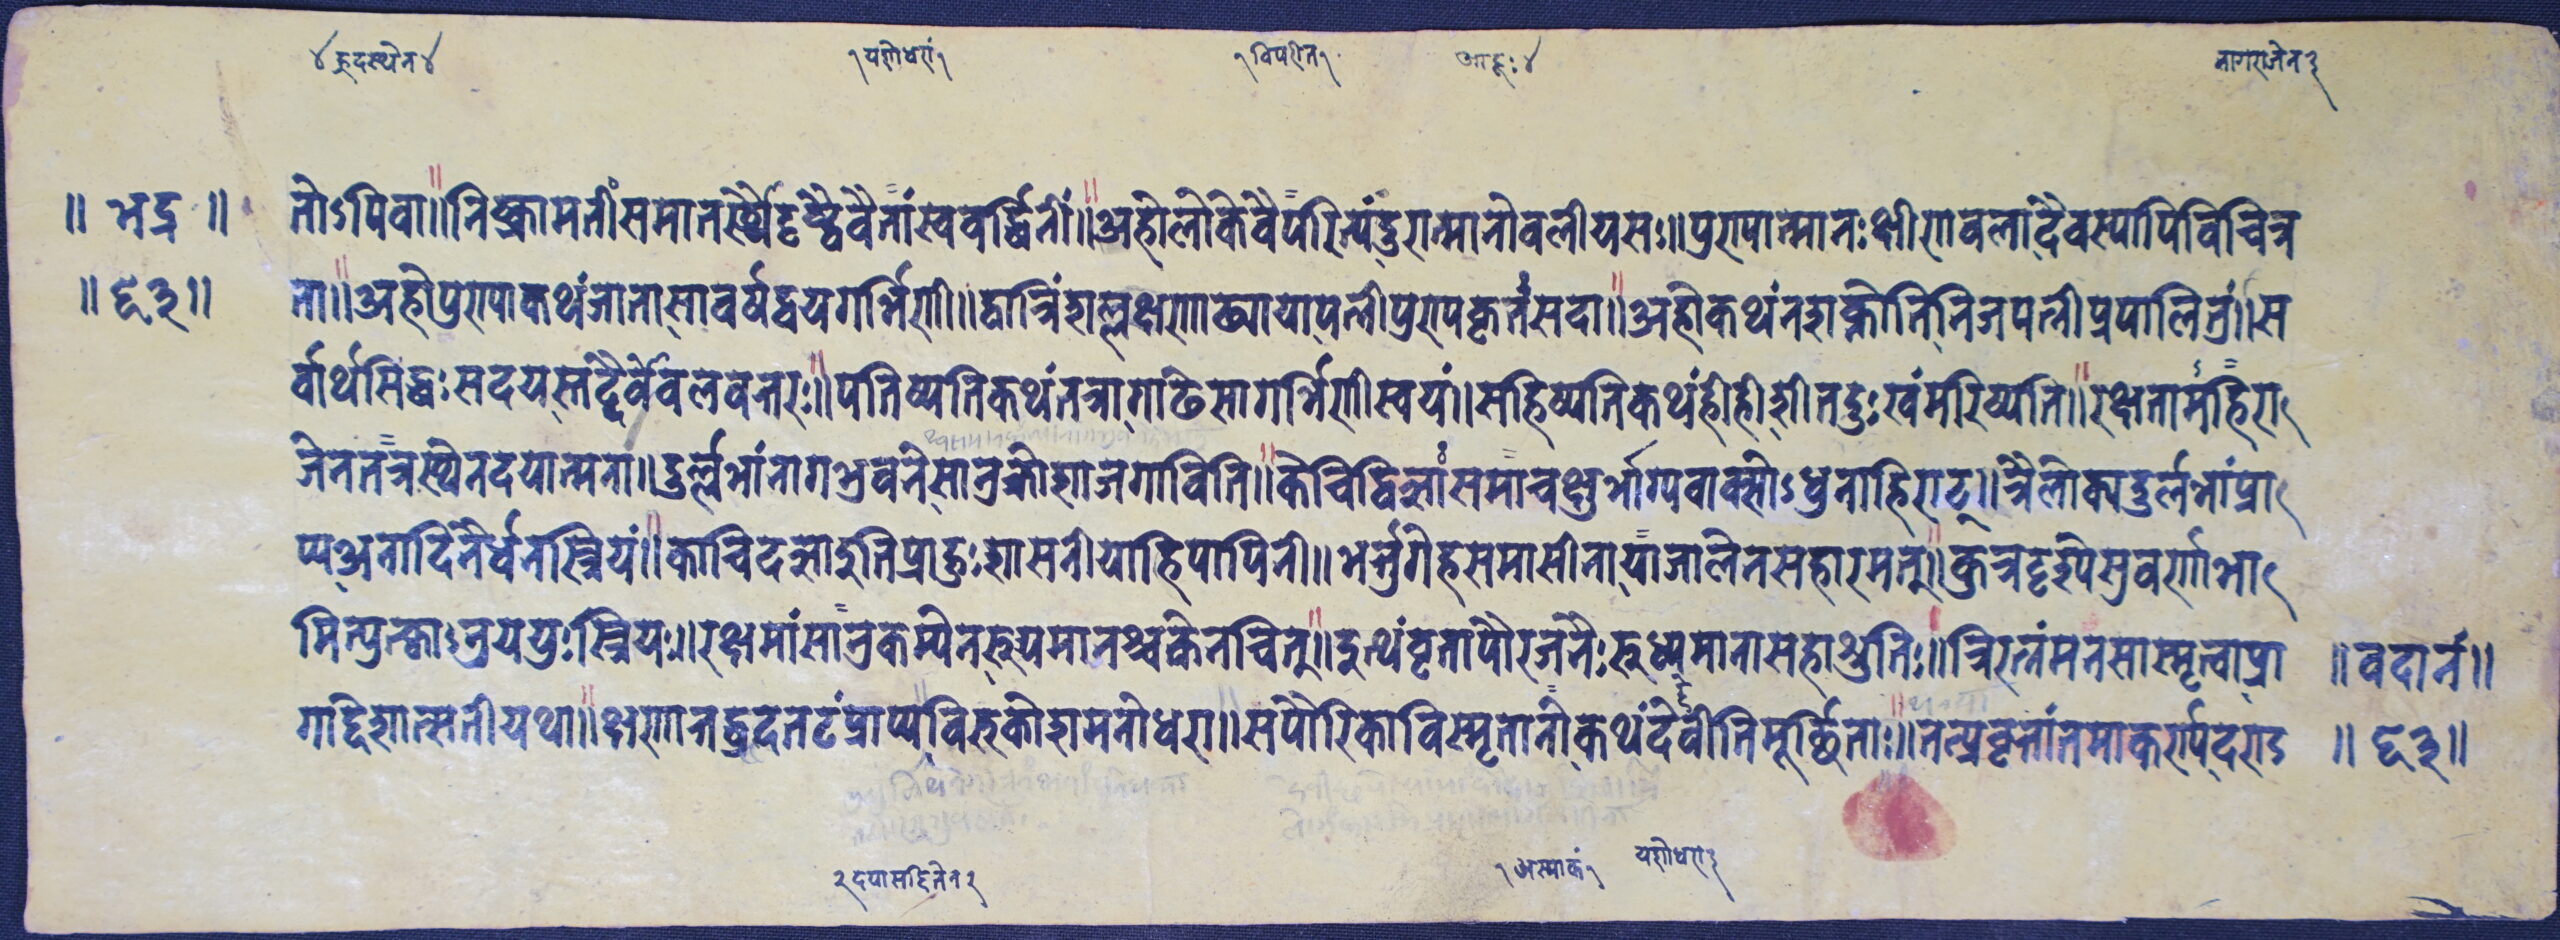 ४ ह्रदस्थेन ४
१ यशोधरां १
१ विपरीत १
आहुः ४
नागराजेन ३
॥ भद्र ॥
तोऽपिवा॥निष्क्रामतीं समानर्ष्यै दृष्ट्वै वैनां स्ववर्द्धिनीं॥अहोलोके वैपरित्यं दुरात्मानो वलीयसः॥पुण्यात्मानः क्षीणवला दैवस्यापि विचित्र
॥ ६३ ॥
ता॥अहो पुण्या कथं जाता सा वर्षद्वयगर्भिणी॥द्वात्रिंशल्लक्षणाढ्याया पत्नी पुण्यकृतं सदा॥अहो कथं न शक्नोति निजपत्नीं प्रपालितुं॥स
र्वार्थसिद्धः सदयस्तं दैवं वलवत्तरः॥पतिष्यति कथं तत्रागाढे सा गर्भिणी स्वयं॥सहिष्यति कथं ही ही शीतदुःखं मरिष्यति॥रक्षतामहिरा
जेन तत्रस्थेन दयात्मना॥दुर्ल्लभां नागभुवने सानुक्रोशा जगाविति॥केचिद्विज्ञां समाचक्षुर्भाग्यवाक्सोऽधुनाहिराट्॥त्रैलोक्यदुर्लभां प्रा
प्य अनादिनैर्धनस्त्रियं॥काचिदज्ञा इति प्राहुः शासनीया हि पापिनी॥भर्तृगेहसमासीना या जालेन सहारमत्॥कुत्र दृश्ये सुवर्णाभा
मित्युत्काऽनुययुः स्त्रियः॥रक्ष मां सानुकम्पेन स्तूयमानश्च केनचित्॥इत्थं वृता पौरजनैः रुध्यमाना सहाश्रुतिः॥त्रिरत्नं मनसा स्मृत्वा प्रा
॥ वदान॥
गाद्दिशात्सती यथा॥क्षणात्तद्ध्रदतटं प्राप्य विरुकोश मनोधरा॥स पौरिका विस्मृता नो कथं देवीति मूर्च्छिताः॥तत्प्रवृत्तां तमाकर्ण्य दराऽ
॥ ६३ ॥
२ दयासहितेन २
१ अस्माकं १
यशोधरा ३